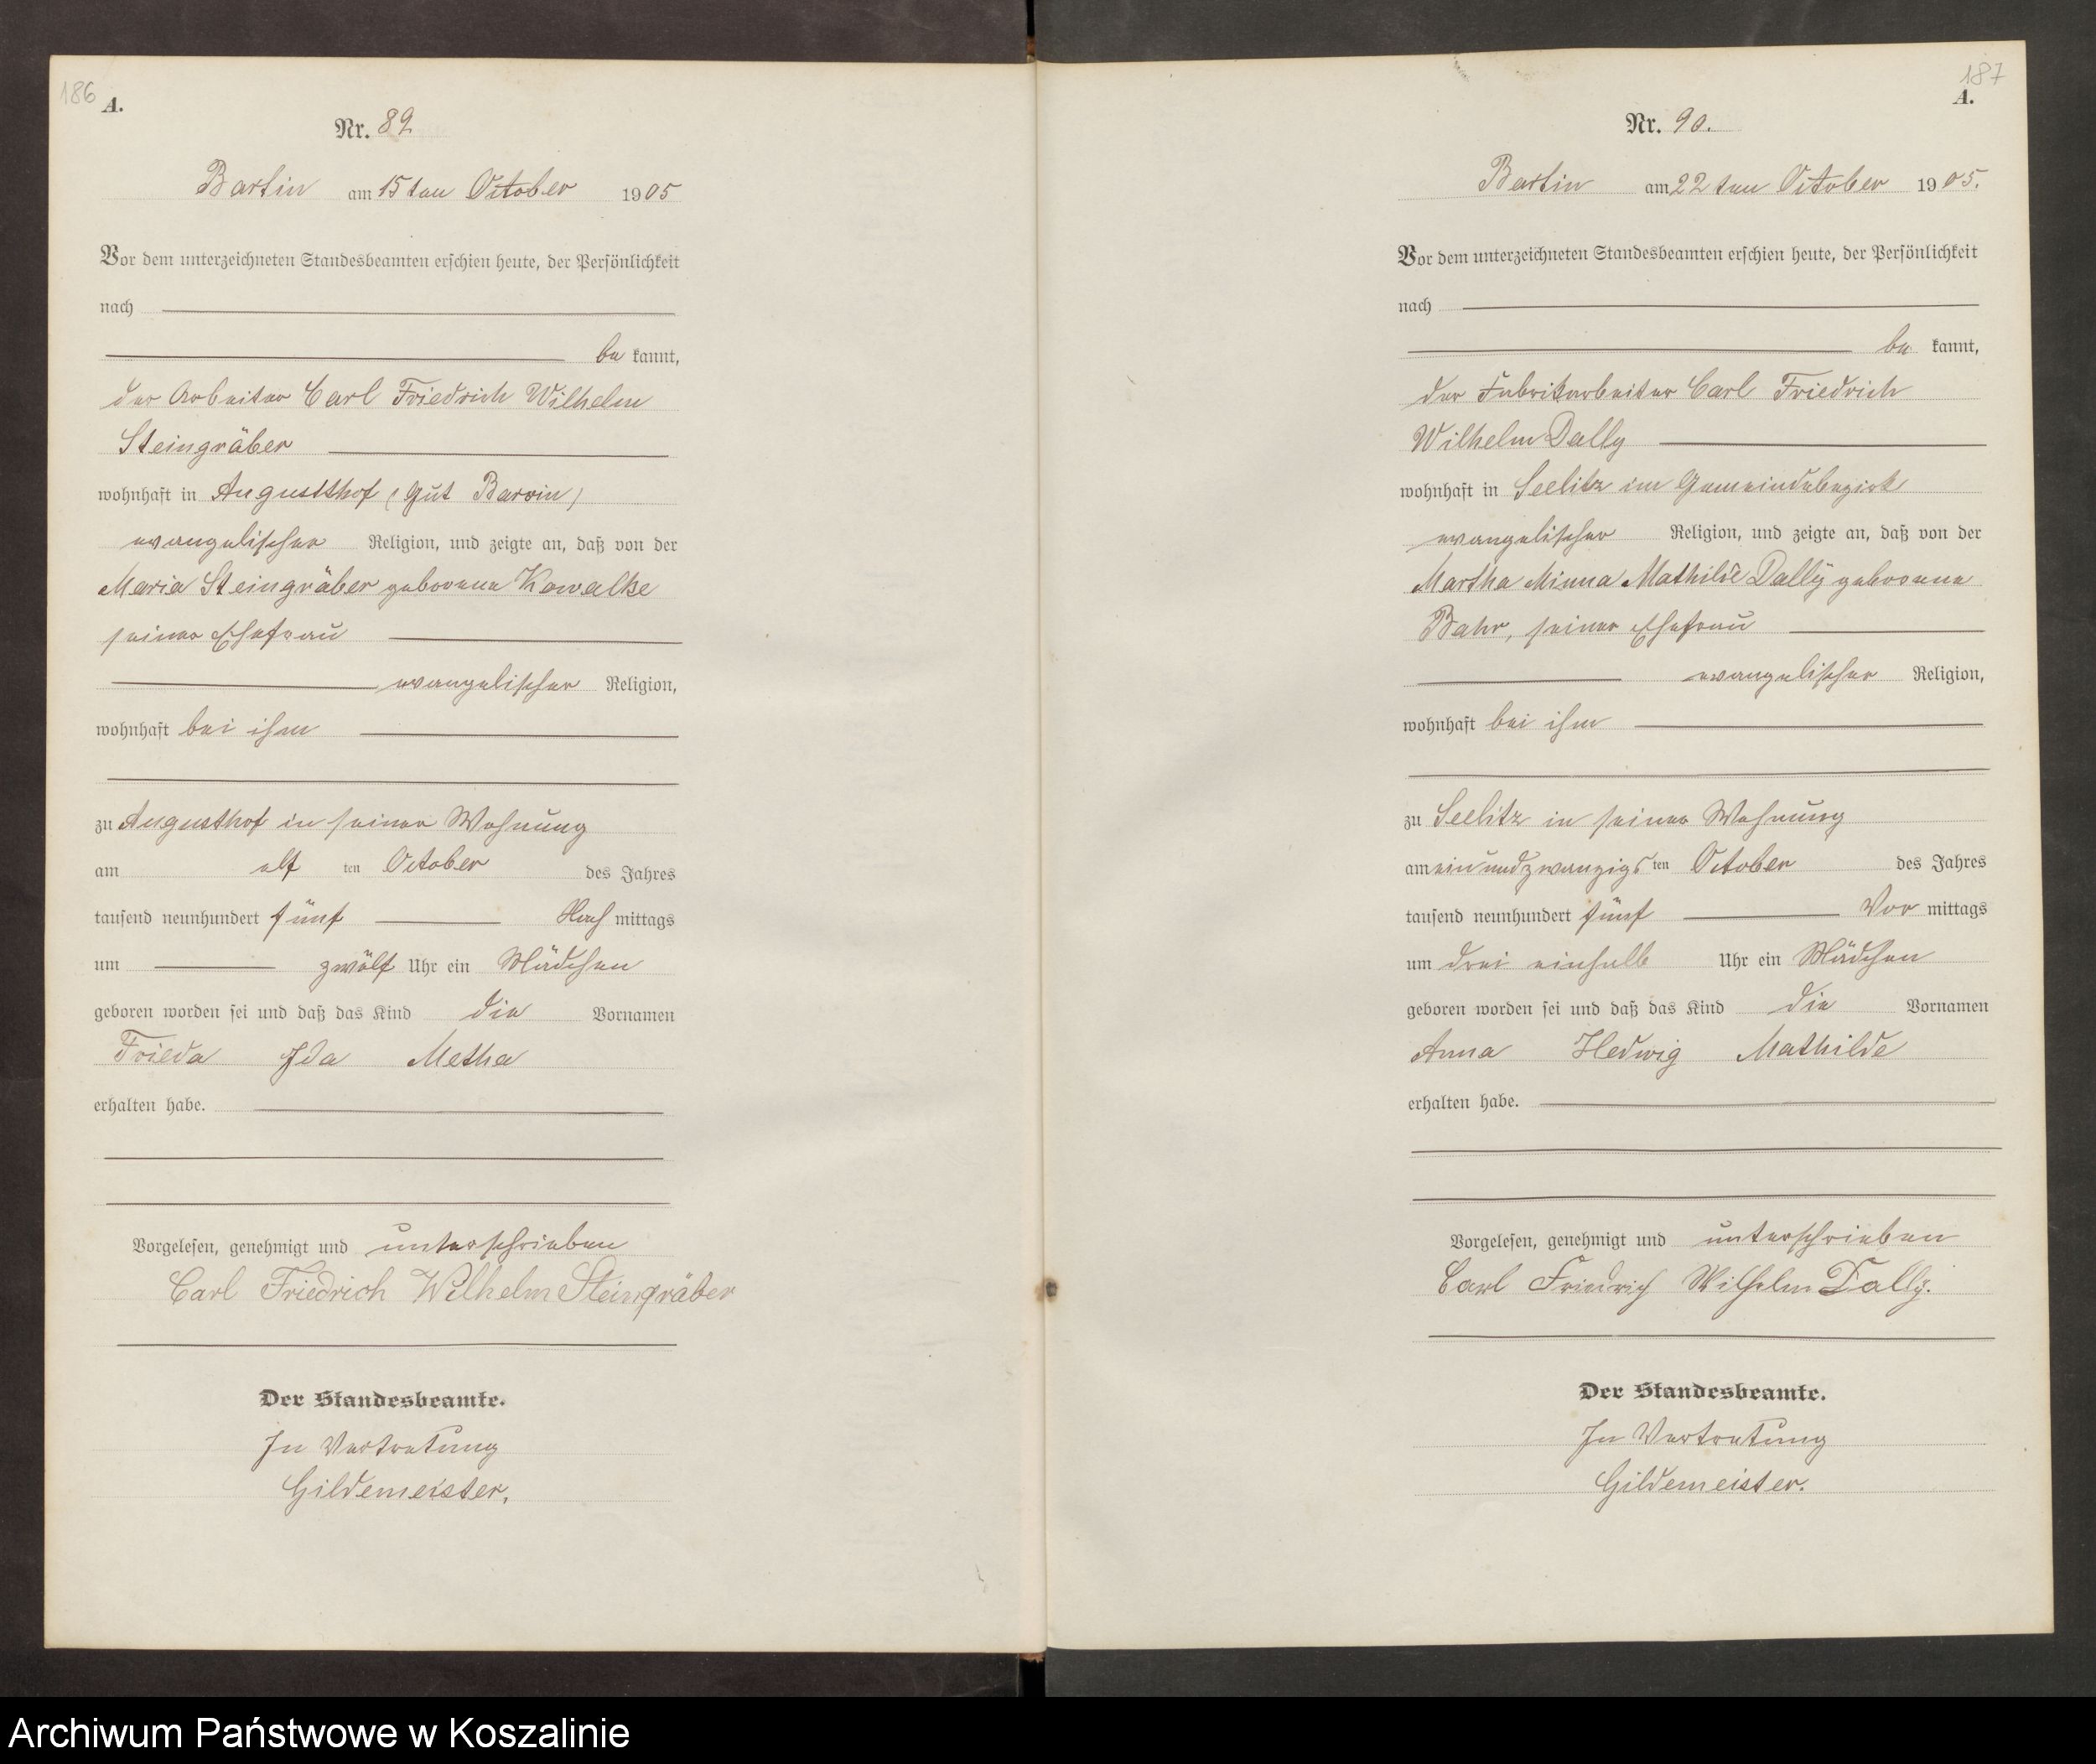 186
A.
Nr. 89
Bartin am 15ten October 1905
Vor dem unterzeichneten Standesbeamten erschien heute, der Persönlichkeit
nach
be kannt,
der Arbeiter Carl Friedrich Wilhelm
Steingräber
wohnhaft in Augustthof (Gut Barvin)
evangelischer Religion, und zeigte an, daß von der
Maria Steingräber geborene Kowalke
seiner Ehefrau
evangelischer Religion,
wohnhaft bei ihm
zu Augusthof in seiner Wohnung
am elf ten October des Jahres
tausend neunhundert fünf Nach mittags
um zwölf Uhr ein Mädchen
geboren worden sei und daß das Kind die Vornamen
Frieda Ida Metha
erhalten habe.
Vorgelesen, genehmigt und unterschrieben
Carl Friedrich Wilhelm Steingräber
Der Standesbeamte.
In Vertretung
Gildemeister.
187
A.
Nr. 90.
Bartin am 22ten October 1905.
Vor dem unterzeichneten Standesbeamten erschien heute, der Persönlichkeit
nach
be kannt,
der Fabrikarbeiter Carl Friedrich
Wilhelm Dally
wohnhaft in Seelitz im Gemeindebezirk
evangelischer Religion, und zeigte an, daß von der
Martha Minna Mathilde Dally geborene
Bahr, seiner Ehefrau
evangelischer Religion,
wohnhaft bei ihm
zu Seelitz in seiner Wohnung
am einundzwanzigs ten October des Jahres
tausend neunhundert fünf Vor mittags
um drei einhalb Uhr ein Mädchen
geboren worden sei und daß das Kind die Vornamen
Anna Hedwig Mathilde
erhalten habe.
Vorgelesen, genehmigt und unterschrieben
Carl Friedrich Wilhelm Dally.
Der Standesbeamte.
In Vertretung
Gildemeister.
Archiwum Państwowe w Koszalinie